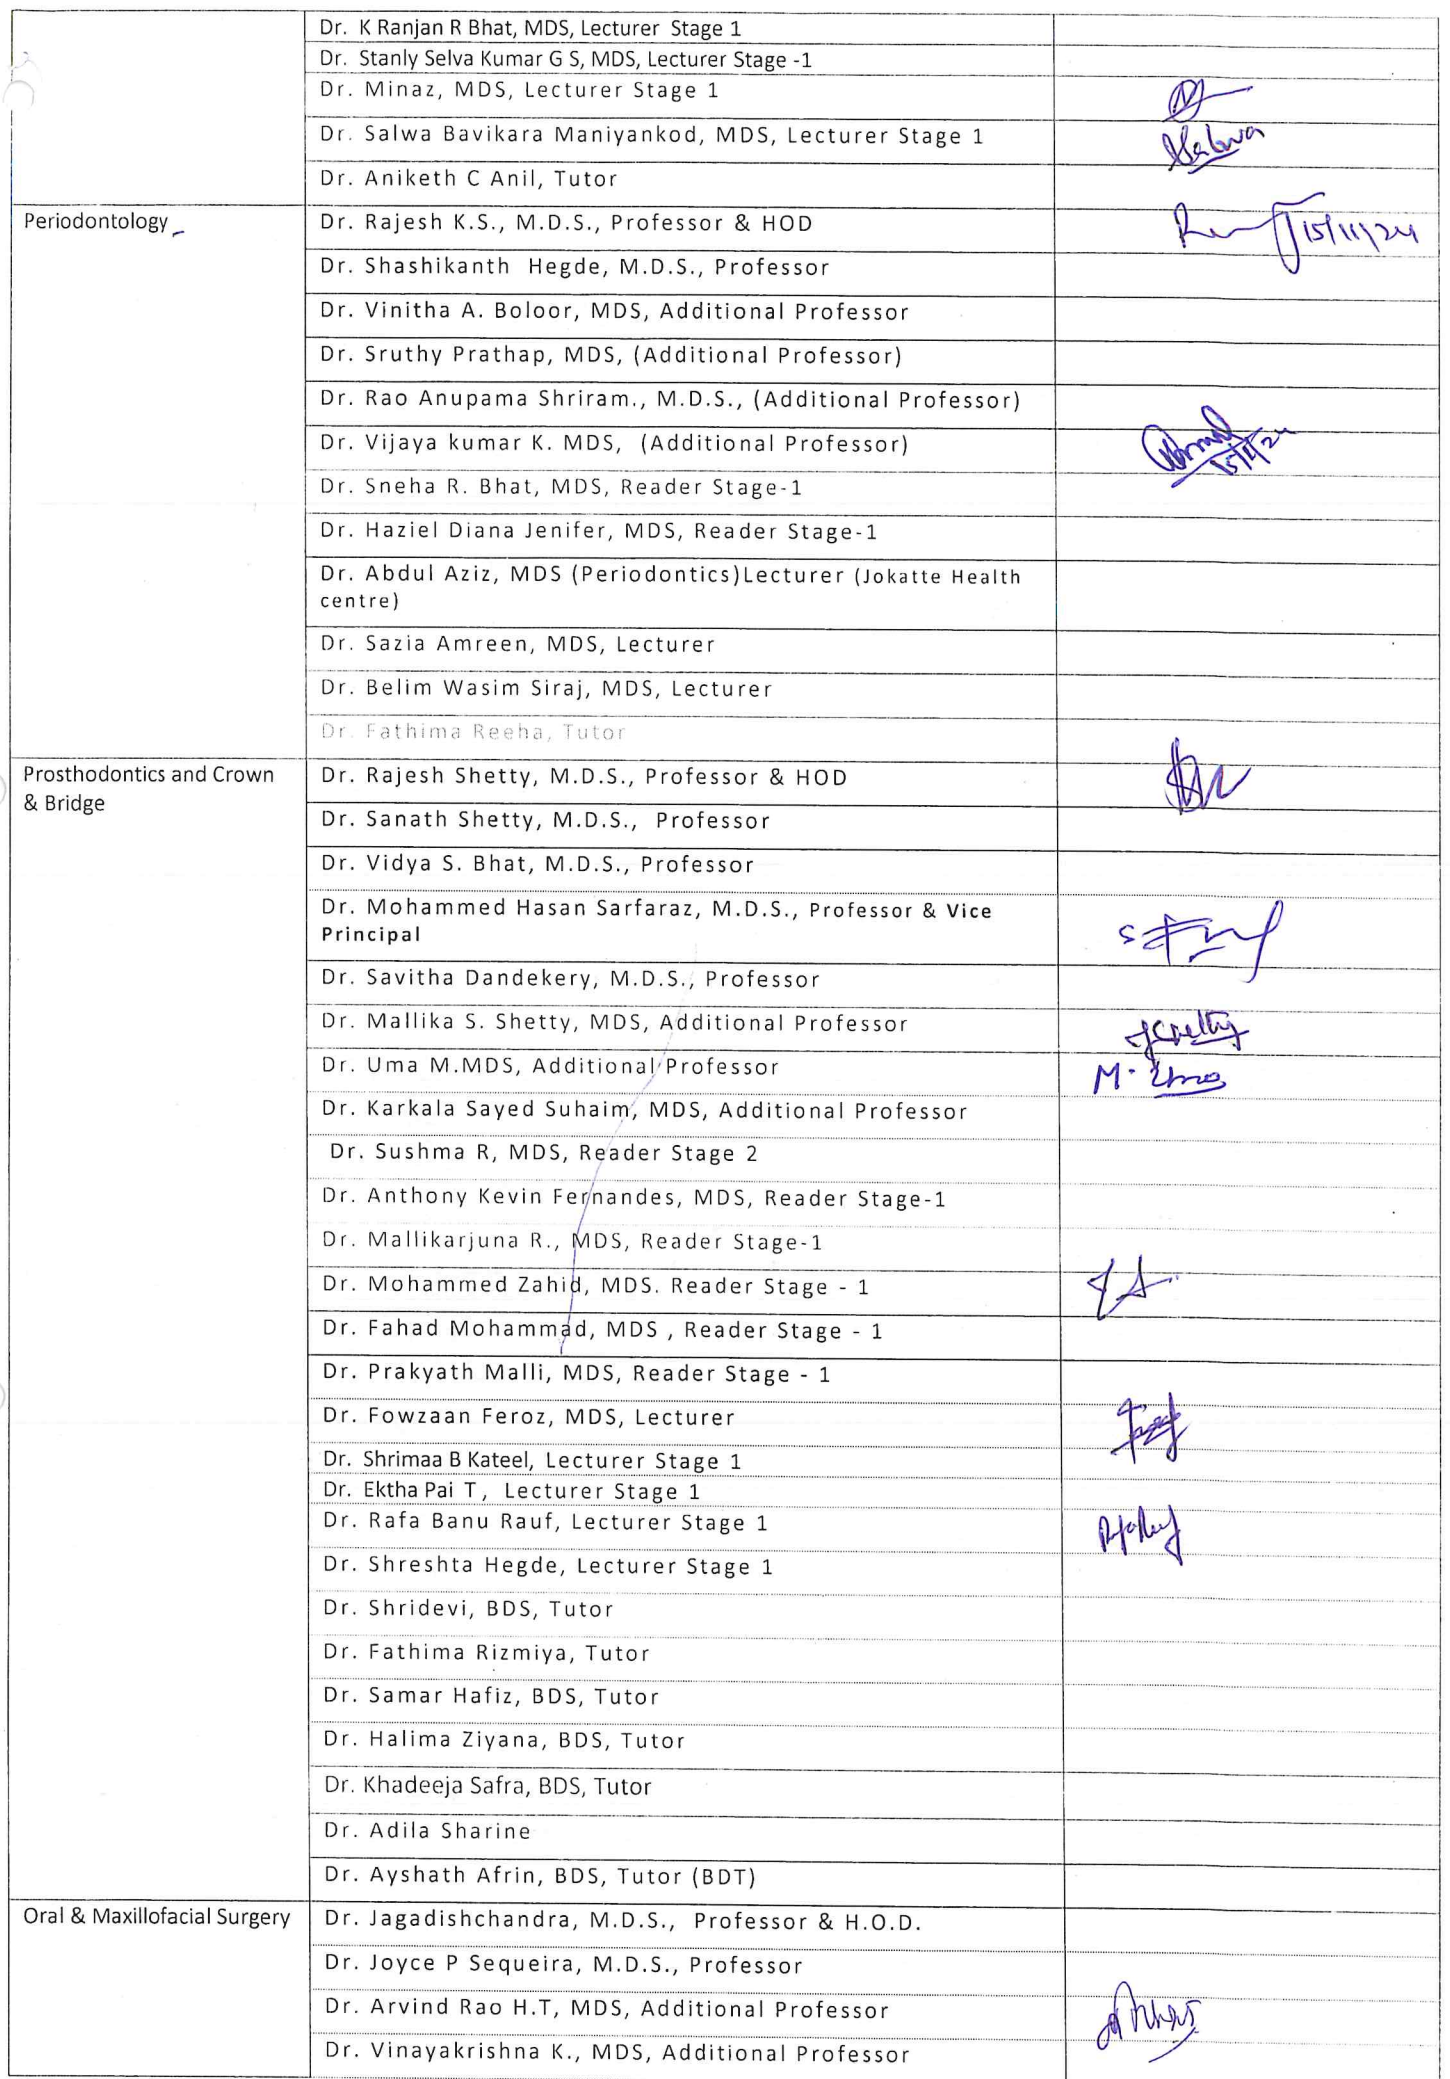 Dr. K Ranjan R Bhat, MDS, Lecturer Stage 1
Dr. Stanly Selva Kumar G S, MDS, Lecturer Stage -1
Dr. Minaz, MDS, Lecturer Stage 1
Dr. Salwa Bavikara Maniyankod, MDS, Lecturer Stage 1
Salwa
Dr. Aniketh C Anil, Tutor
Periodontology
Dr. Rajesh K.S., M.D.S., Professor & HOD
15/11/24
Dr. Shashikanth Hegde, M.D.S., Professor
Dr. Vinitha A. Boloor, MDS, Additional Professor
Dr. Sruthy Prathap, MDS, (Additional Professor)
Dr. Rao Anupama Shriram., M.D.S., (Additional Professor)
Dr. Vijaya kumar K. MDS, (Additional Professor)
15/11/24
Dr. Sneha R. Bhat, MDS, Reader Stage-1
Dr. Haziel Diana Jenifer, MDS, Reader Stage-1
Dr. Abdul Aziz, MDS (Periodontics)Lecturer (Jokatte Health
centre)
Dr. Sazia Amreen, MDS, Lecturer
Dr. Belim Wasim Siraj, MDS, Lecturer
Dr. Fathima Reeha, Tutor
Prosthodontics and Crown
& Bridge
Dr. Rajesh Shetty, M.D.S., Professor & HOD
Dr. Sanath Shetty, M.D.S., Professor
Dr. Vidya S. Bhat, M.D.S., Professor
Dr. Mohammed Hasan Sarfaraz, M.D.S., Professor & Vice
Principal
Dr. Savitha Dandekery, M.D.S., Professor
Dr. Mallika S. Shetty, MDS, Additional Professor
Dr. Uma M.MDS, Additional Professor
M. Uma
Dr. Karkala Sayed Suhaim, MDS, Additional Professor
Dr. Sushma R, MDS, Reader Stage 2
Dr. Anthony Kevin Fernandes, MDS, Reader Stage-1
Dr. Mallikarjuna R., MDS, Reader Stage-1
Dr. Mohammed Zahid, MDS. Reader Stage - 1
Dr. Fahad Mohammad, MDS , Reader Stage - 1
Dr. Prakyath Malli, MDS, Reader Stage - 1
Dr. Fowzaan Feroz, MDS, Lecturer
Dr. Shrimaa B Kateel, Lecturer Stage 1
Dr. Ektha Pai T, Lecturer Stage 1
Dr. Rafa Banu Rauf, Lecturer Stage 1
Dr. Shreshta Hegde, Lecturer Stage 1
Dr. Shridevi, BDS, Tutor
Dr. Fathima Rizmiya, Tutor
Dr. Samar Hafiz, BDS, Tutor
Dr. Halima Ziyana, BDS, Tutor
Dr. Khadeeja Safra, BDS, Tutor
Dr. Adila Sharine
Dr. Ayshath Afrin, BDS, Tutor (BDT)
Oral & Maxillofacial Surgery
Dr. Jagadishchandra, M.D.S., Professor & H.O.D.
Dr. Joyce P Sequeira, M.D.S., Professor
Dr. Arvind Rao H.T, MDS, Additional Professor
Dr. Vinayakrishna K., MDS, Additional Professor